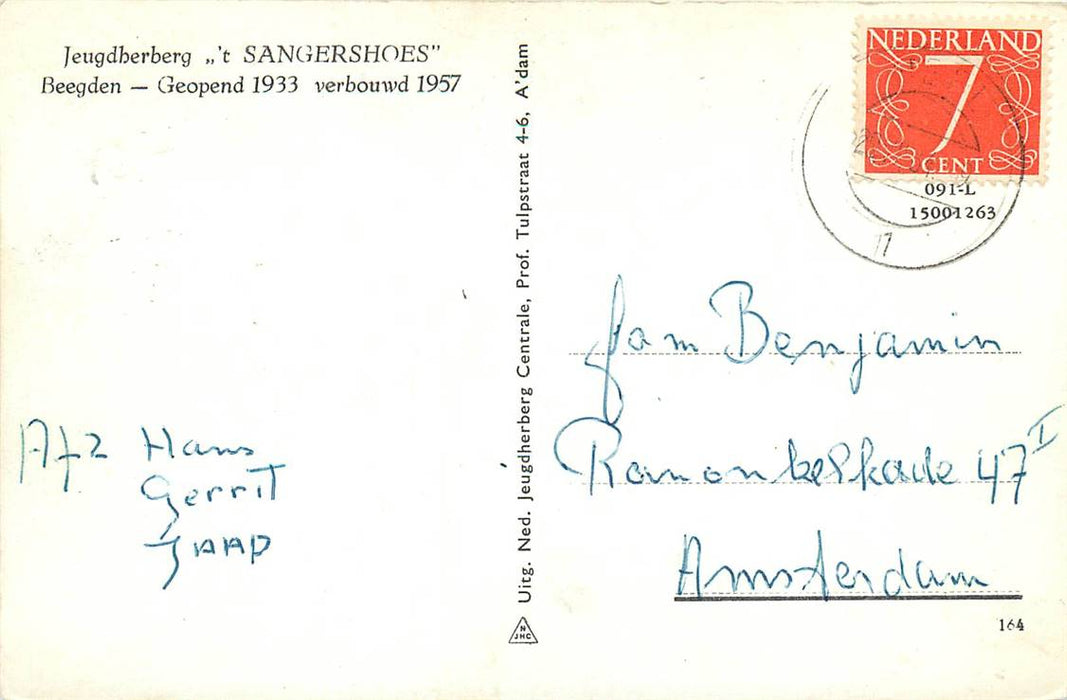 Jeugdherberg „'t SANGERSHOES”
Beegden — Geopend 1933 verbouwd 1957
Afz Hans
Gerrit
JAAP
Uitg. Ned. Jeugdherberg Centrale, Prof. Tulpstraat 4-6, A'dam
N
JHC
NEDERLAND
7
CENT
091-L
15001263
17
Fam Benjamin
47 I
Amsterdam
164